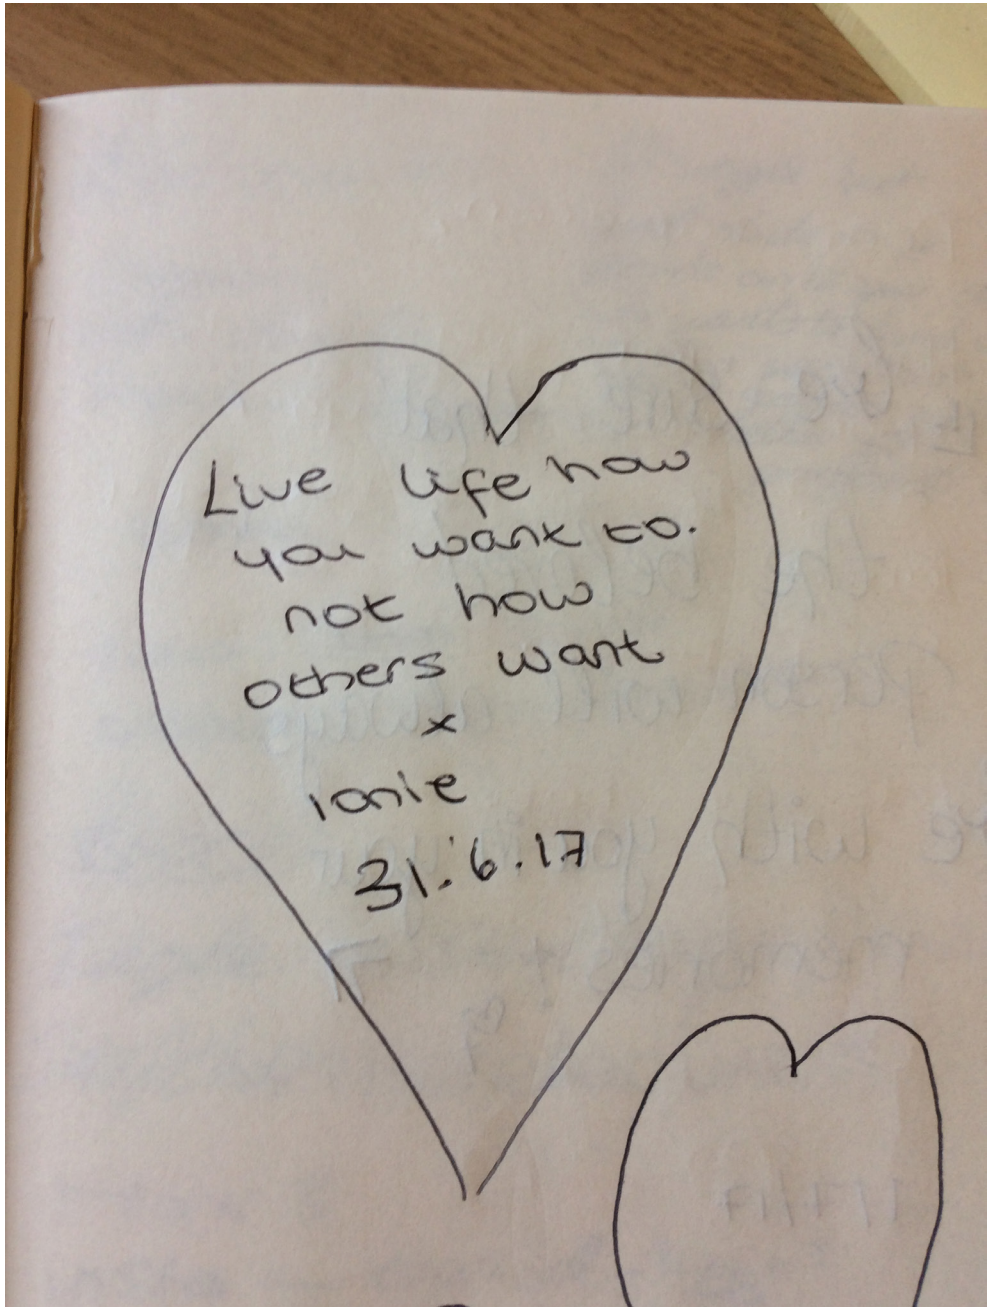 Live life how
you want to.
not how
others want
x
ionie
31.6.17